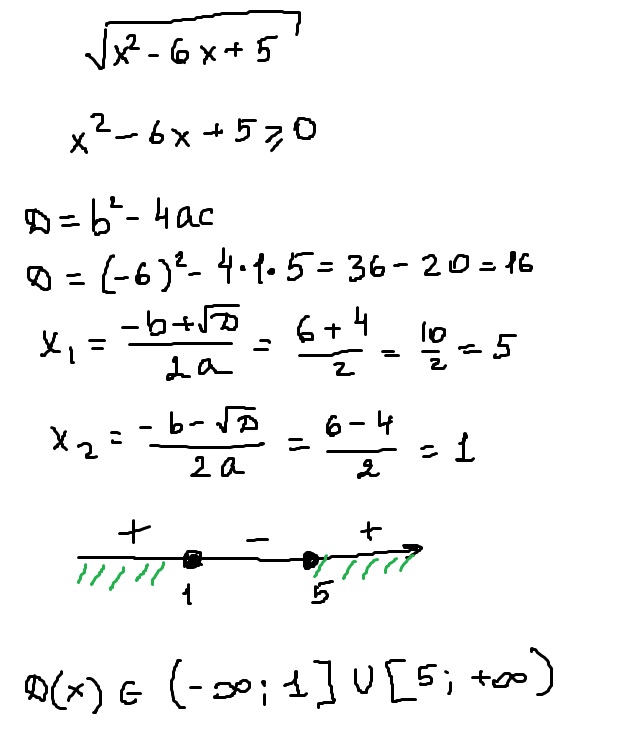 √(x² - 6x + 5)
x² - 6x + 5 ⩾ 0
D = b² - 4ac
D = (-6)² - 4·1·5 = 36 - 20 = 16
x₁ = (-b+√D)/(2a) = (6+4)/2 = 10/2 = 5
x₂ = (-b-√D)/(2a) = (6-4)/2 = 1
+ - +
1 5
D(x) ∈ (-∞; 1] ∪ [5; +∞)